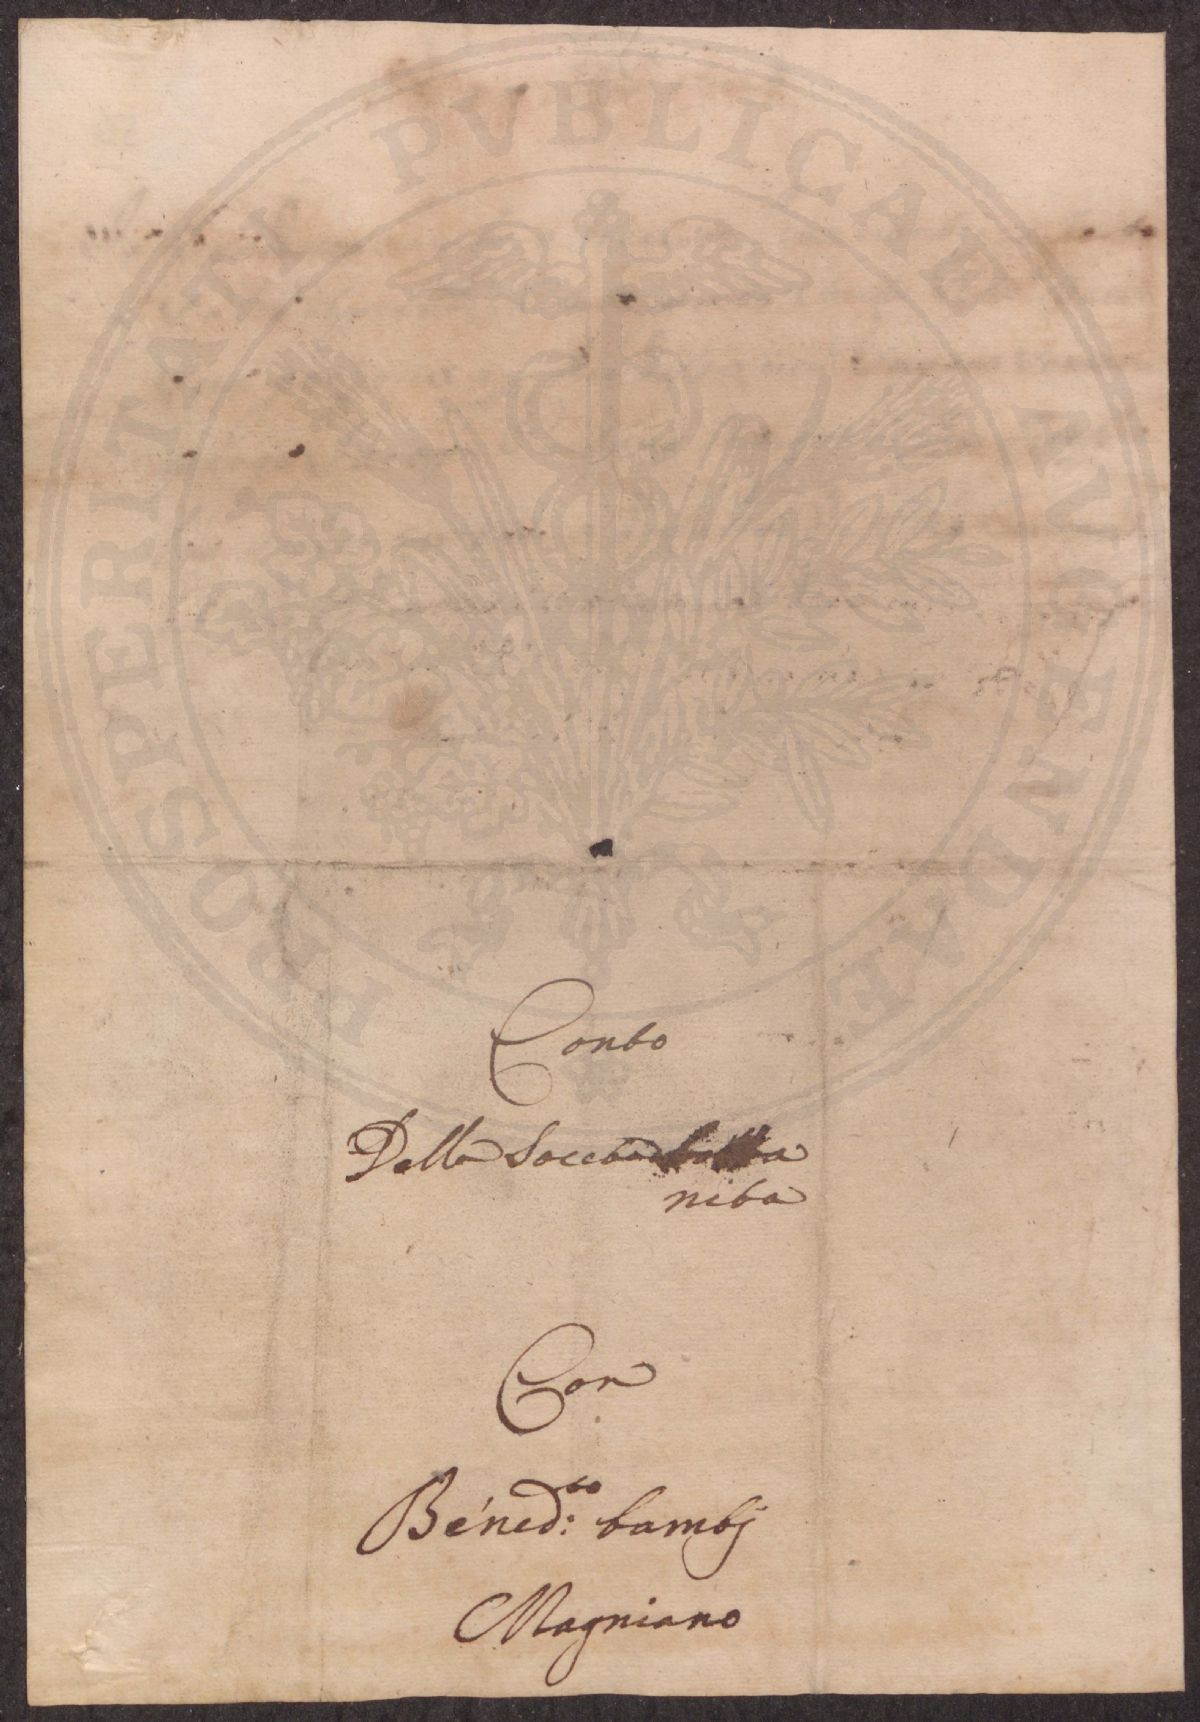 PROSPERITATI PVBLICAE AVGENDAE
Conto
Della Soccita
nita
Con
Béned:to bambj
Magniano